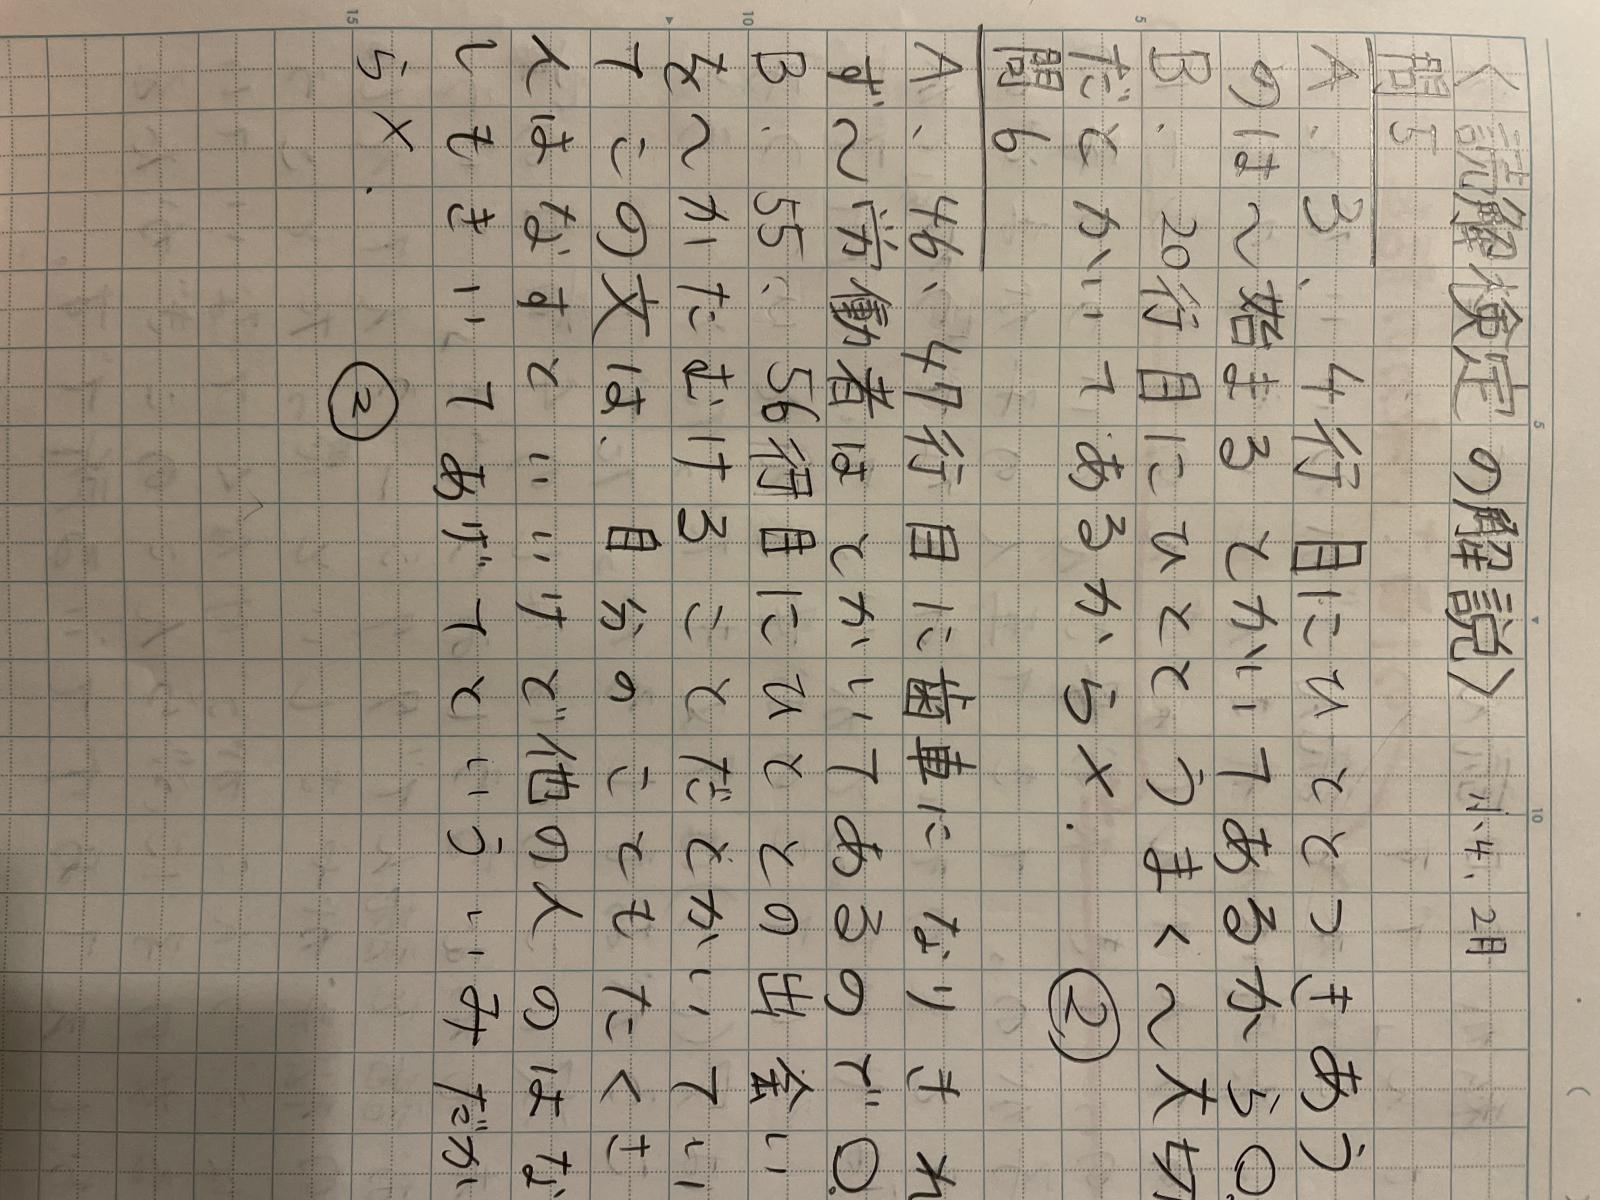 〈読解検定の解説〉 小4.2月
問5
A、3、4行目にひととつきあう
のは〜始まるとかいてあるから○
B、20行目にひととうまく〜大切
だとかいてあるから×. ②
問6
A、46、47行目に歯車になりきれ
ず〜労働者はとかいてあるので○.
B、55、56行目にひととの出会い
を〜かたむけることだとかいてい
てこの文は、自分のこともたくさ
んはなすといいけど他の人のはな
しもきいてあげてといういみだか
ら×. ②
5
10
15
5
10